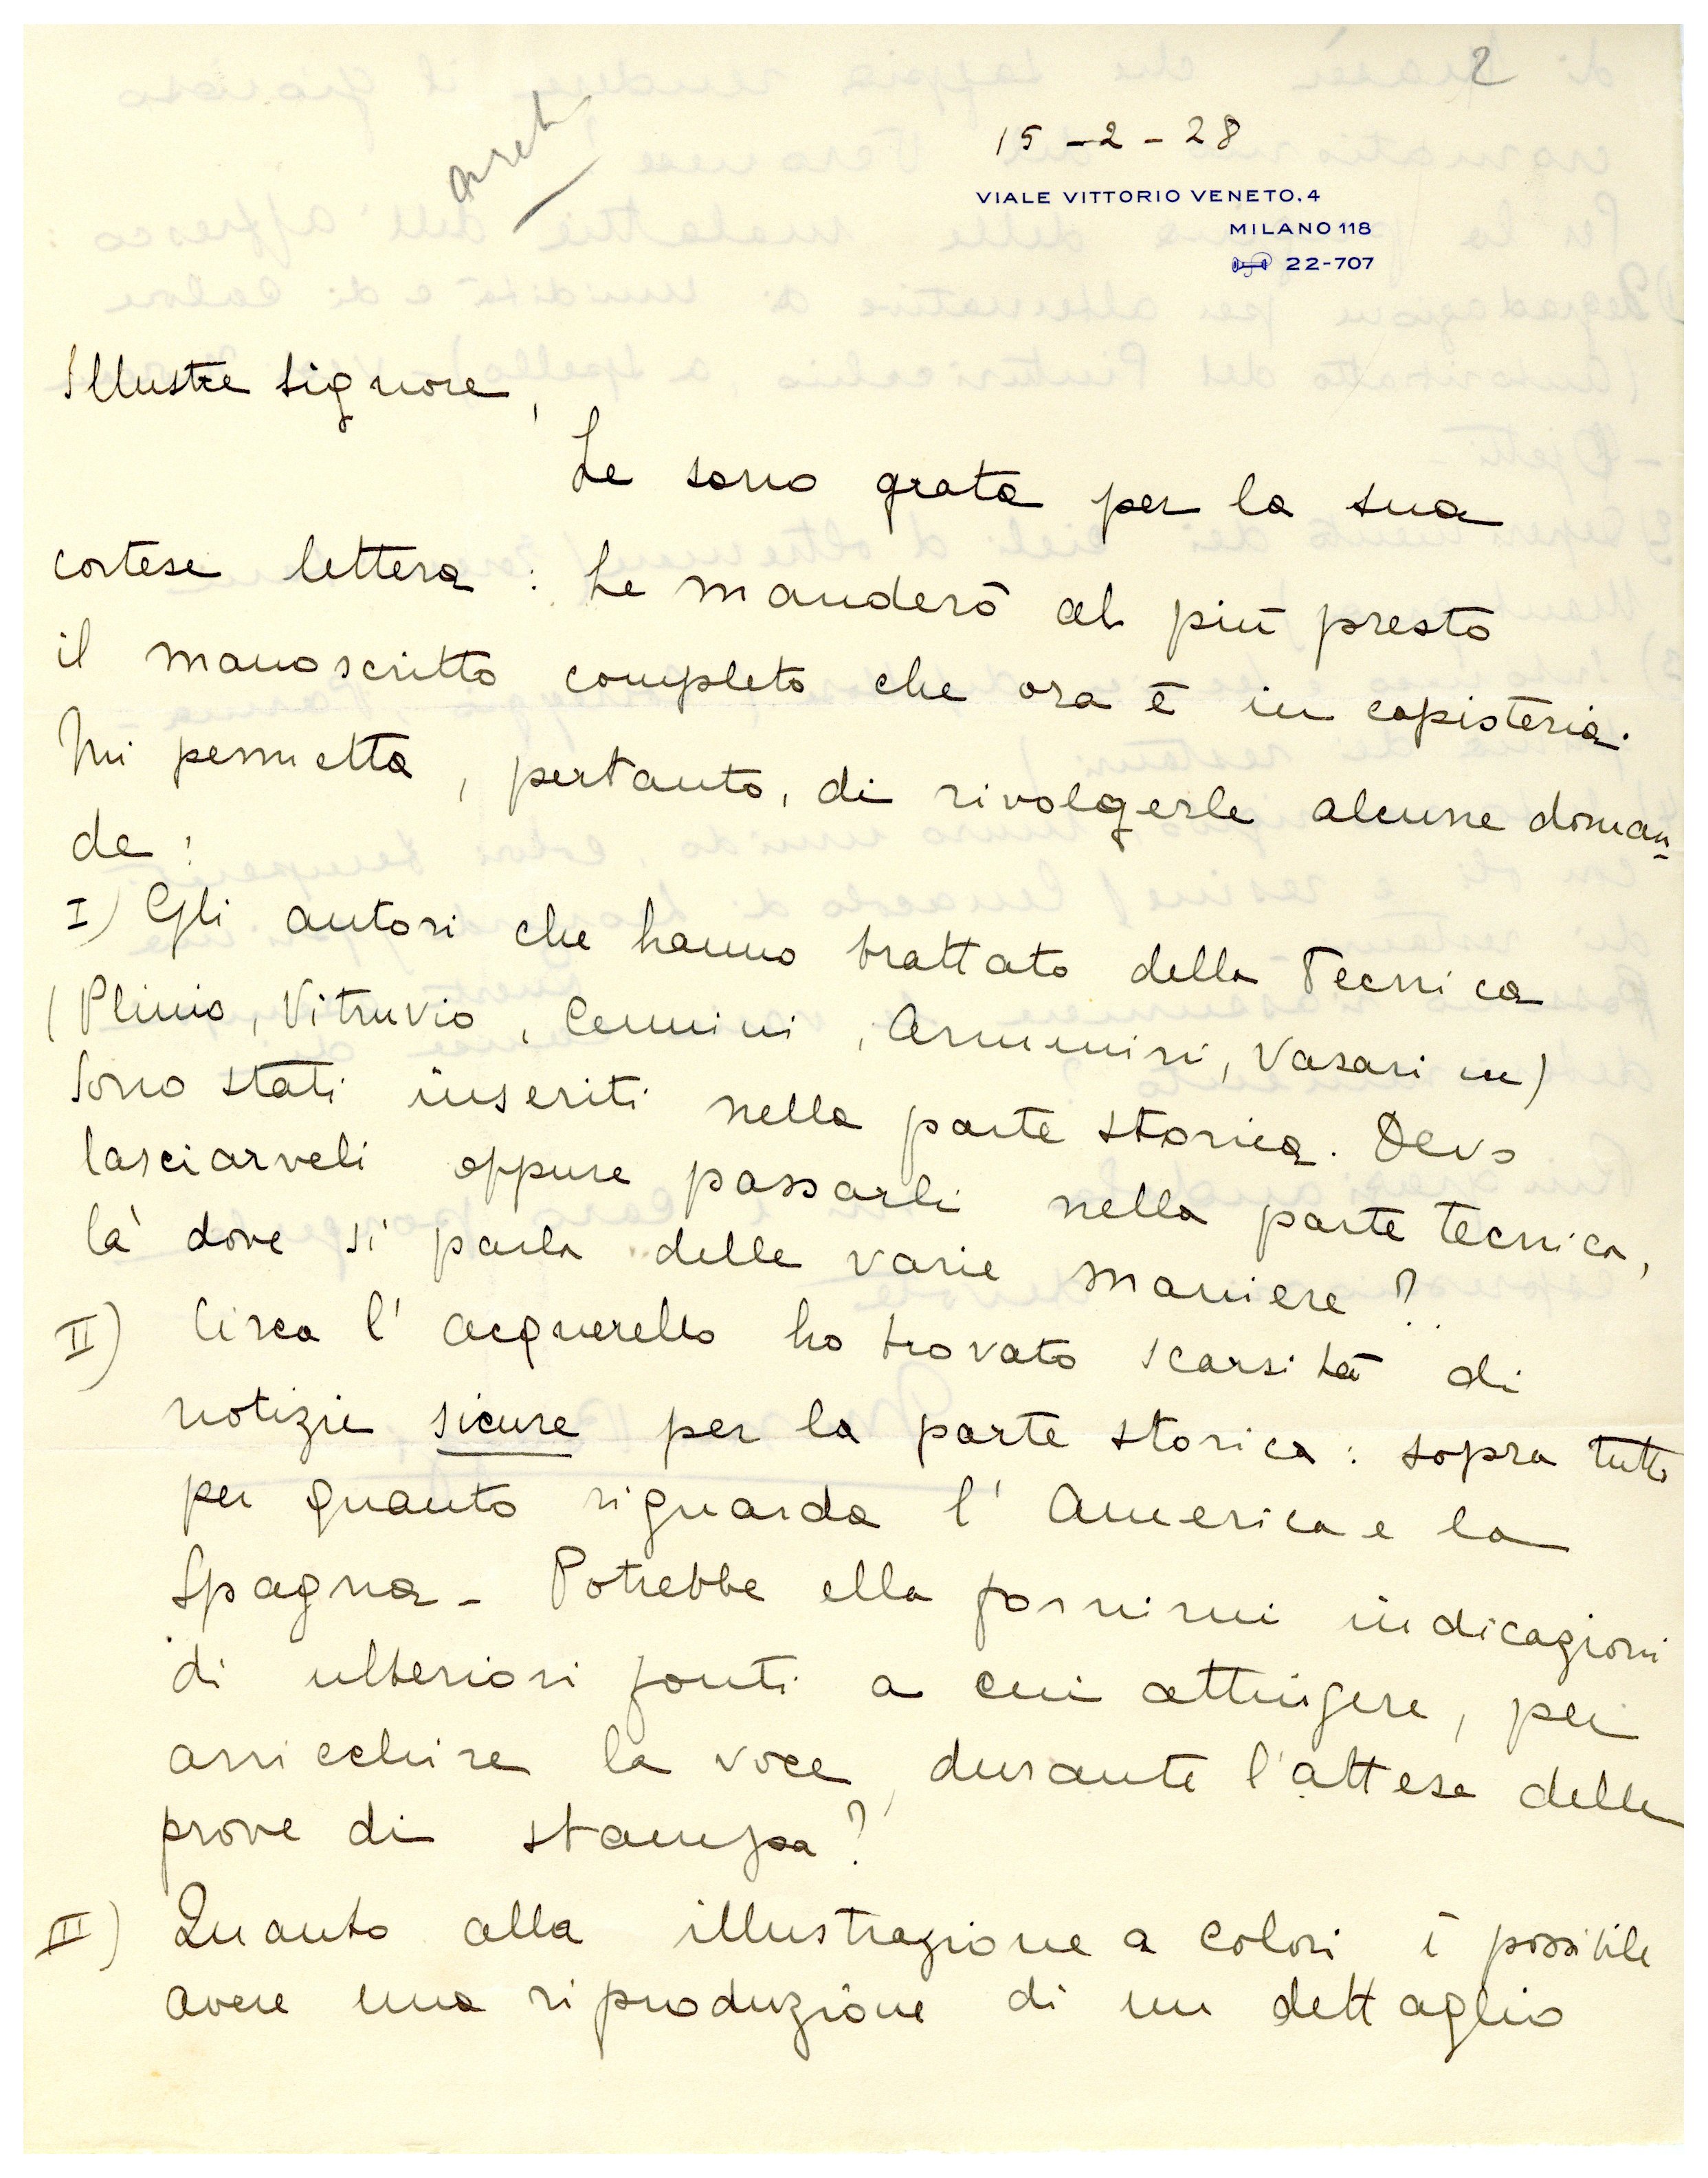 2
15-2-28
VIALE VITTORIO VENETO, 4
MILANO 118
22-707
Illustre Signore,
Le sono grata per la sua
cortese lettera: Le manderò al più presto
il manoscritto completo che ora è in copisteria.
Mi permetta, pertanto, di rivolgerle alcune doman-
de:
I) Gli autori che hanno trattato della Tecnica
(Plinio, Vitruvio, Cennini, Armenini, Vasari
Sono stati inseriti nella parte storica. Devo
lasciarveli oppure passarli nella parte tecnica,
là dove si parla delle varie maniere?
II) Circa l'acquerello ho trovato scarsità di
notizie sicure per la parte storica: sopra tutto
per quanto riguarda l'America e la
Spagna - Potrebbe ella fornirmi indicazioni
di ulteriori fonti a cui attingere, per
arricchire la voce, durante l'attesa delle
prove di stampa?
II) Quanto alla illustrazione a colori è possibile
avere una riproduzione di un dettaglio